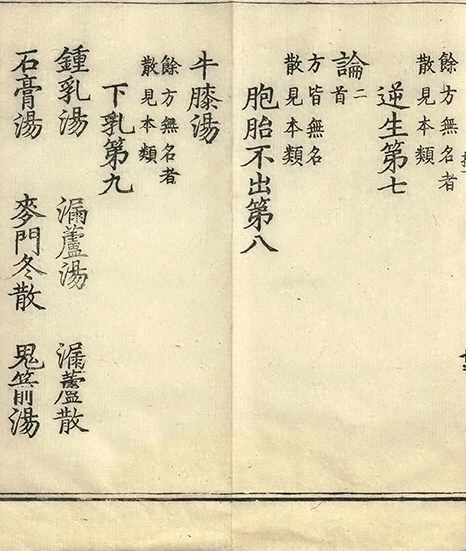 餘方無名者
散見本類
逆生第七
論二首
方皆無名
散見本類
胞胎不出第八
牛膝湯
餘方無名者
散見本類
下乳第九
鍾乳湯 漏蘆湯 漏蘆散
石膏湯 麥門冬散 鬼箭湯